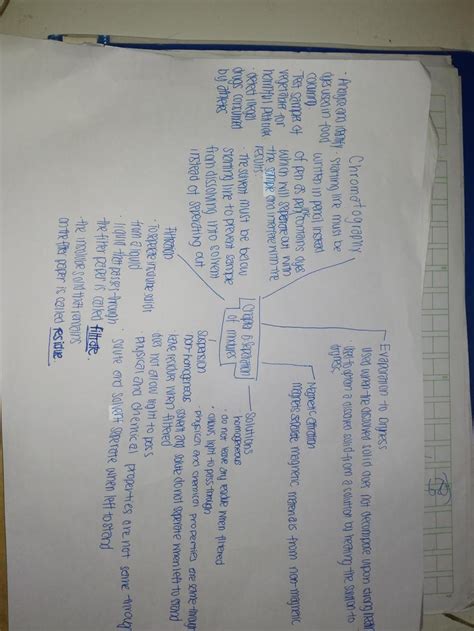 Chapter 6 Separation
of mixtures
Chromatography
starting line must be
written in pencil instead
of pen as pen contains dyes
which will separate out with
the sample and interfere with the
results
· The solvent must be below
starting line to prevent sample
from dissolving into solvent
instead of separating out
· Analyse and identify
dyes used in food
colouring
· Test samples of
vegetables for
harmful
· Detect illegal
drugs consumed
by athletes
Filtration
· Separate insoluble solids
from a liquid
· liquid that passes through
the filter paper is called filtrate.
· the insoluble solid that remains
on the filter paper is called residue.
Evaporation to dryness
used when the dissolved solid does not decompose upon strong heating
· Used to obtain a dissolved solid from a solution by heating the solution to
dryness
Magnetic attraction
magnets separate magnetic materials from non-magnetic
Solutions
· homogeneous
· do not leave any residue when filtered
· allows light to pass through
· physical and chemical properties are same through
· solvent and solute do not separate when left to stand
Suspension
· non-homogeneous
· leave residue when filtered
· do not allow light to pass
· Physical and chemical properties are not same through
· solute and solvent separate when left to stand